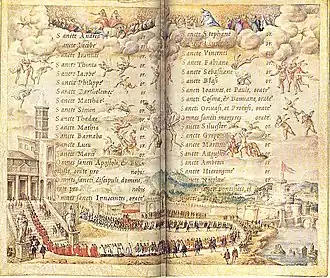 Sancte Andrea or.
Sancte Iacobe or.
Sancte Ioannes or.
Sancte Thoma or.
Sancte Iacobe or.
Sancte Philippe or.
Sancte Bartholomee or.
Sancte Matthæe or.
Sancte Simon or.
Sancte Thadee or.
Sancte Mathia or.
Sancte Barnaba or.
Sancte Luca or.
Sancte Marce or.
Omnes sancti Apostoli, &
orate pro nobis
Omnes sancti discipuli domini,
orate pro nobis
Omnes sancti Innocentes, orate
Sancte Stephane
Sancte or.
Sancte Vincenti or.
Sancte Fabiane or.
Sancte Sebastiane or.
Sancte Blasi
Sancti Ioannes, et Paule, orate
Sancti Cosma, & Damiane, orate
Sancti Gervasi, et Protasi, orate
Omnes sancti martyres orate
Sancte Silvester or.
Sancte Gregori or.
Sancte Martine or.
Sancte Augustine or.
Sancte Ambrosi or.
Sancte Hieronyme or.
Sancte Nicolae or.
Omnes sancti et